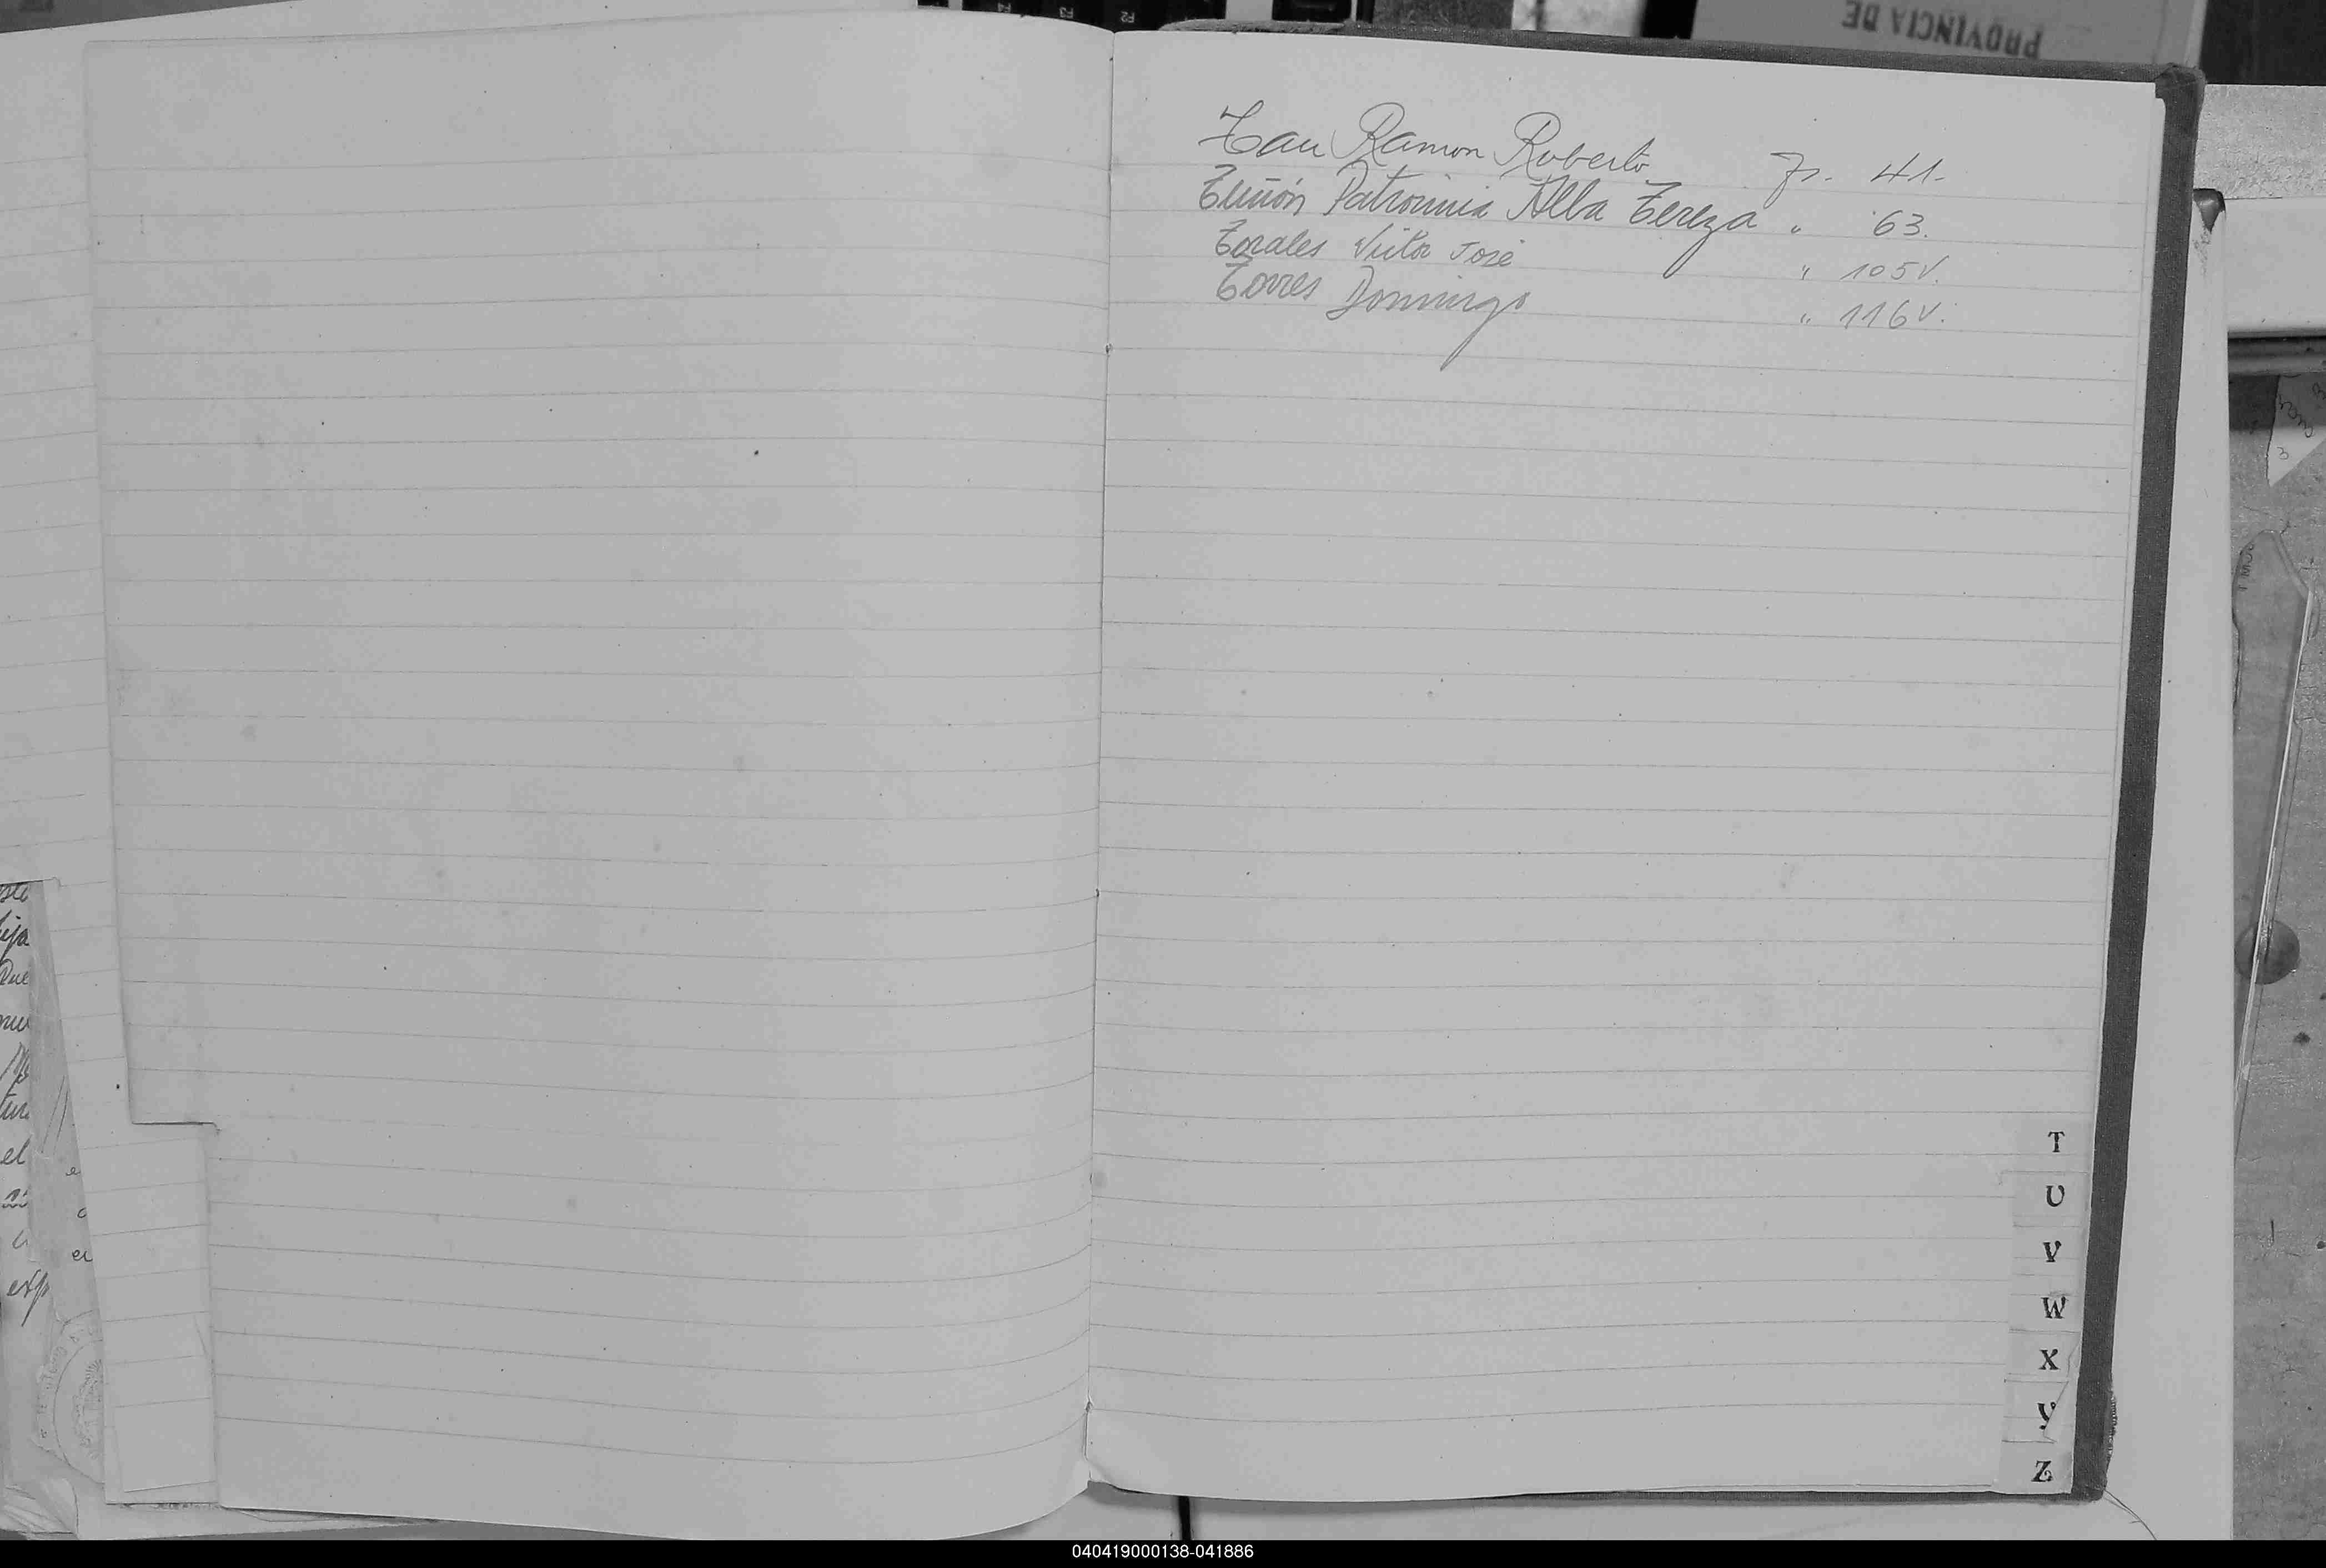 PROVINCIA DE
Tau Ramon Roberto Fs. 41.
Tuñón Patrocinia Alba Tereza " 63.
Torales Victor José " 105 V.
Torres Domingo " 116 V.
T
U
V
W
X
Y
Z
el
exp
040419000138-041886